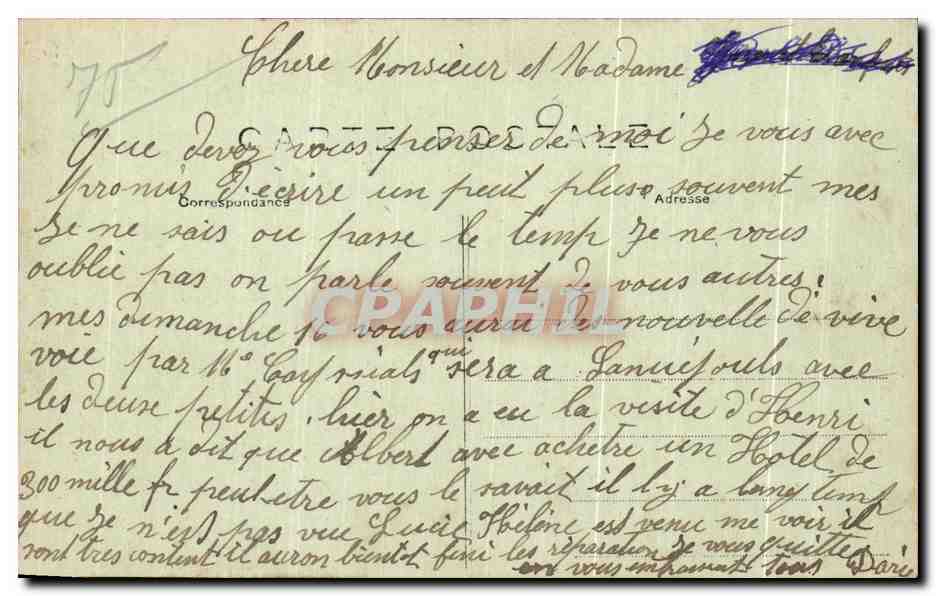 75
Chere Monsieur et Madame
CARTE POSTALE
Que devez vous penser de moi Je vous avec
promis d'écrire un peut pluse souvent mes
Correspondance
Adresse
Je ne sais ou passe le temp Je ne vous
oublie pas on parle souvent de vous autres.
CPAPHIL
mes dimanche 16 vous aurai des nouvelle de vive
voie par Me qui sera a Lanuéjouls avec
les deuse petites. hier on a eu la visite d'Henri
il nous a dit que Albert avec achetre un Hotel de
300 mille fr peut etre vous le savait il l'y a long temp
que Je n'est pas vue Lucie Hélène est venu me voir il
sont tres content il auron bientot fini les réparation Je vous quitte
en vous embrassant tous